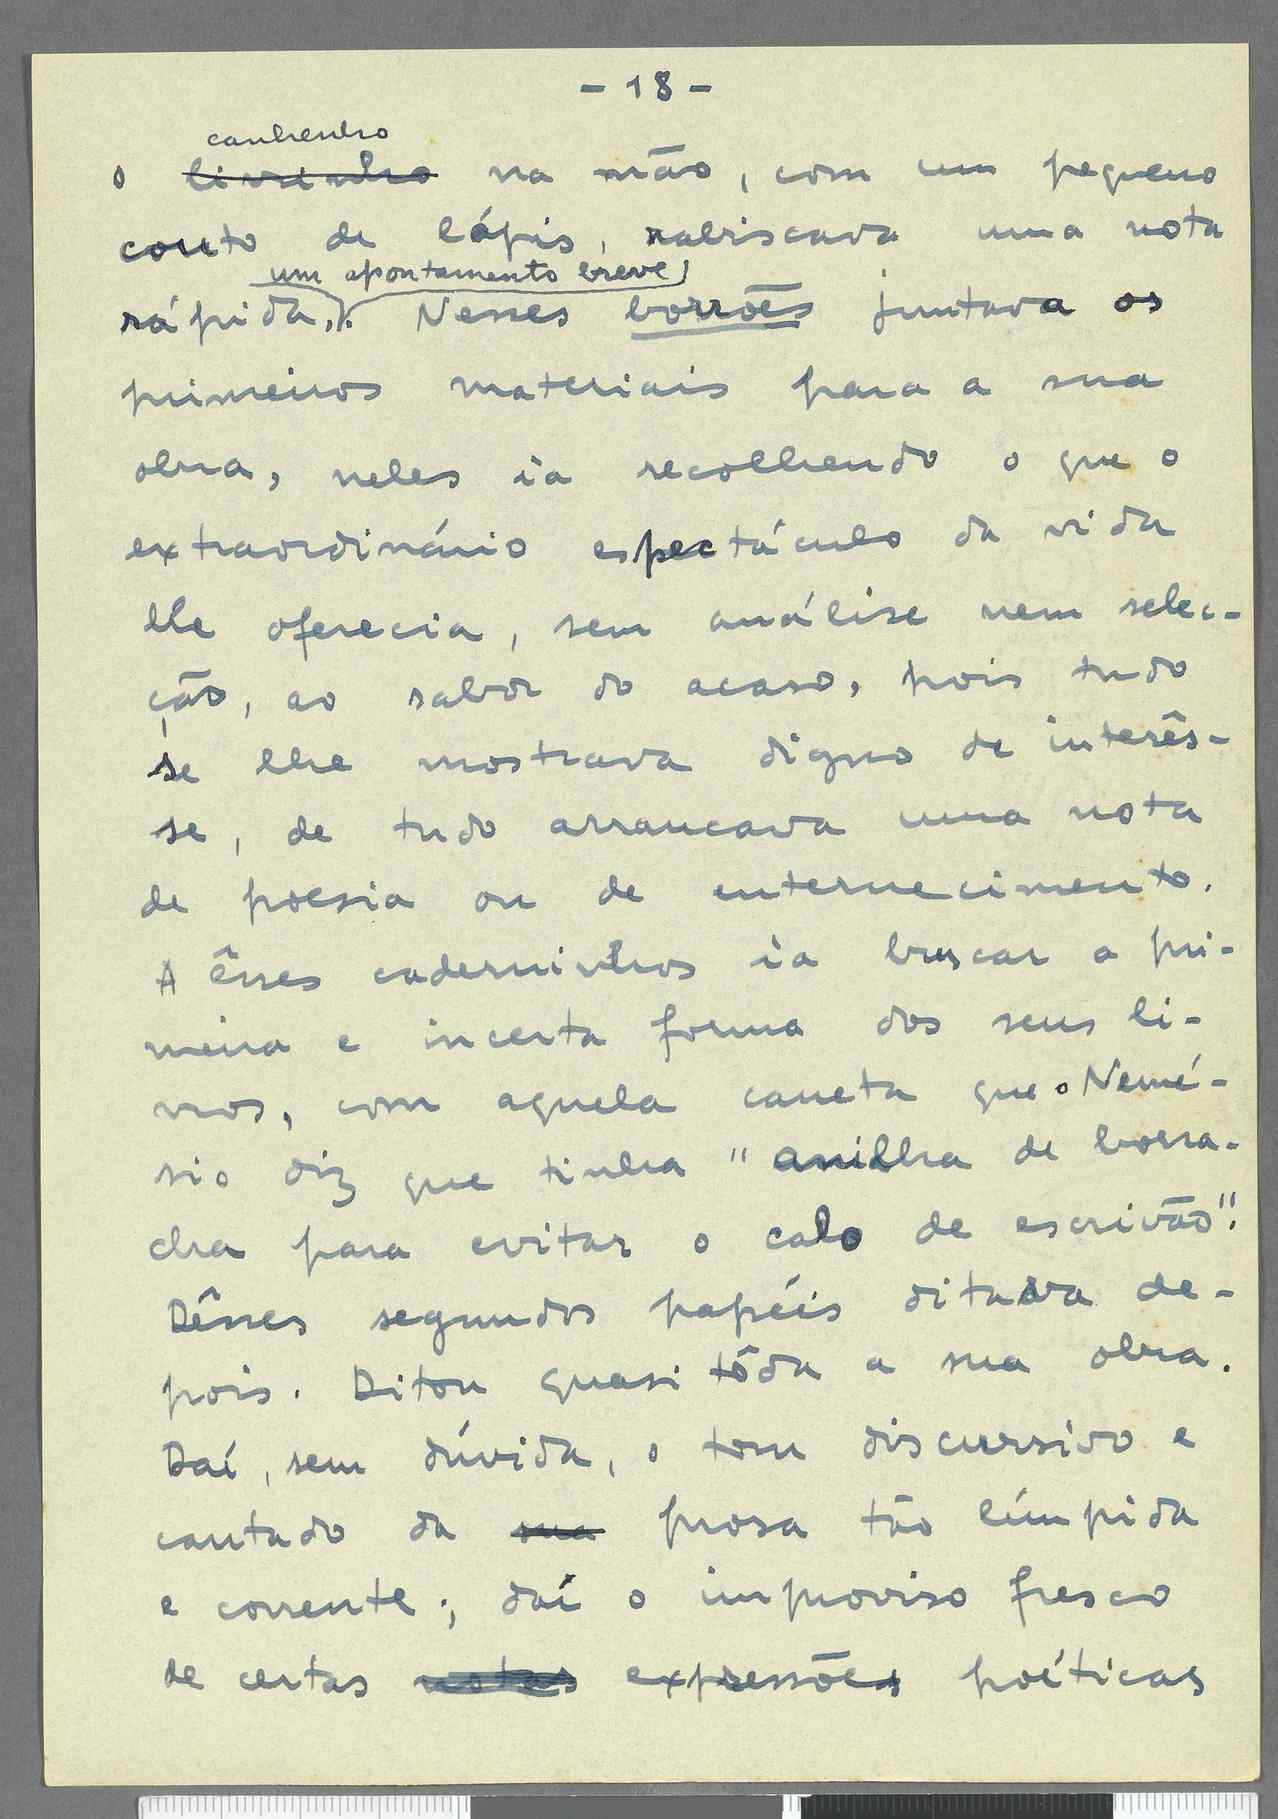 - 18 -
canhenho
o livrinho na mão, com um pequeno
couto de lápis, rabiscava uma nota
um apontamento breve
rápida,). Nesses borrões juntava os
primeiros materiais para a sua
obra, neles ia recolhendo o que o
extraordinário espectáculo da vida
lhe oferecia, sem análise nem selec-
ção, ao sabor do acaso, pois tudo
se lhe mostrava digno de interês-
se, de tudo arrancava uma nota
de poesia ou de enternecimento.
A êsses caderninhos ia buscar a pri-
meira e incerta forma dos seus li-
vros, com aquela caneta que o Nemé-
sio diz que tinha "anilha de borra-
cha para evitar o calo de escrivão".
Dêsses segundos papéis ditava de-
pois. Ditou quasi tôda a sua obra.
Daí, sem dúvida, o tom discursivo e
cantado da sua prosa tão límpida
e corrente; daí o improviso fresco
de certas notas expressões poéticas